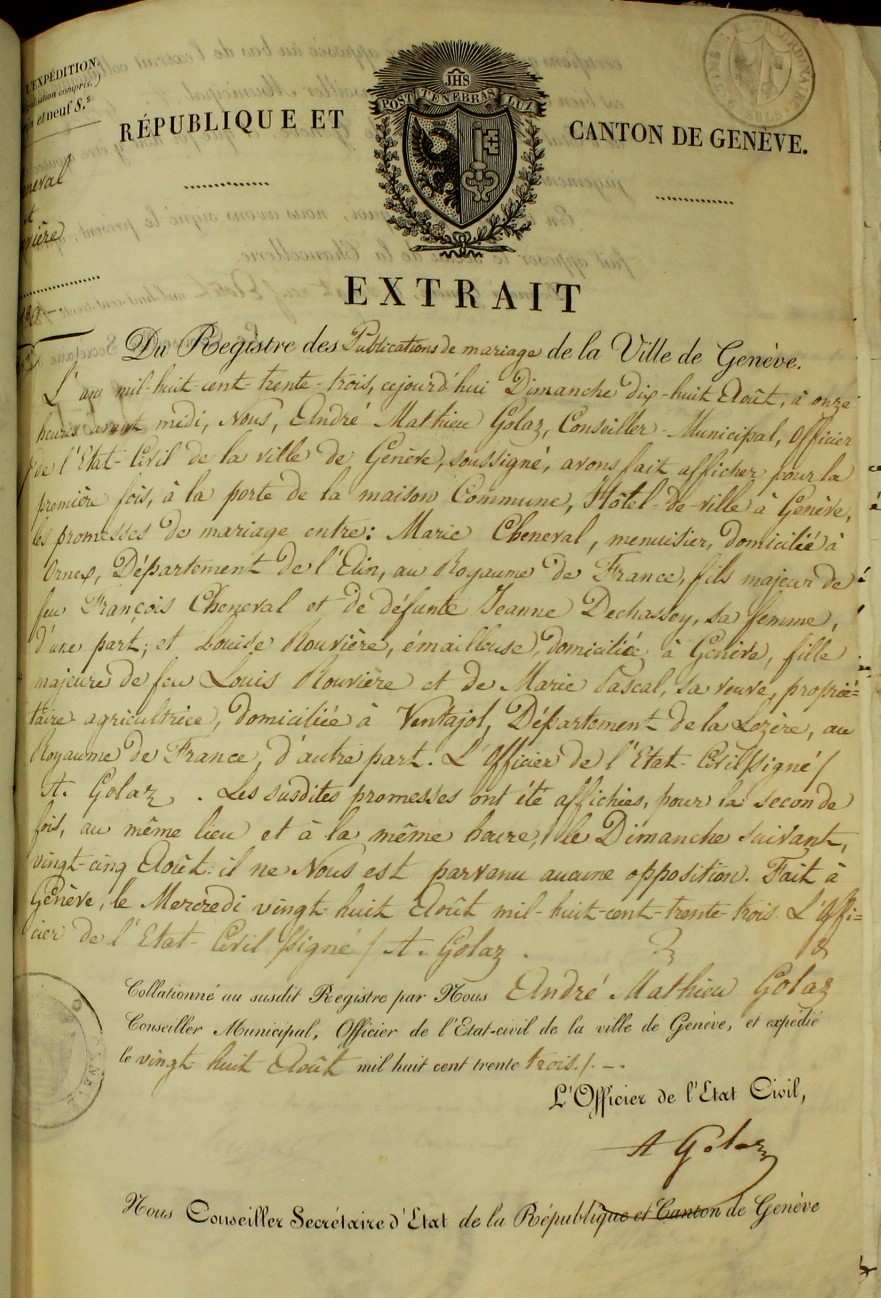 L'EXPÉDITION.
compris.)
et neuf S.s
RÉPUBLIQUE ET
JHS
POST TENEBRAS LUX
CANTON DE GENÈVE.
EXTRAIT
Du Registre des Publications de mariage de la Ville de Genève.
L'an mil-huit-cent-trente-trois, cejourd'hui Dimanche dix-huit Août, à onze
heures avant midi, Nous, André Mathieu Golaz, Conseiller-Municipal, Officier
de l'Etat-Civil de la ville de Genève, soussigné, avons fait afficher pour la
première fois, à la porte de la maison Commune, Hôtel-de-ville à Genève,
les promesses de mariage entre: Marie Cheneval, menuisier, domicilié à
Ornex, Département de l'Ain, au Royaume de France, fils majeur de
feu François Cheneval et de défunte Jeanne Dechassey, sa femme,
d'une part; et Louise Rouvière, émailleuse, domiciliée à Genève, fille
majeure de feu Louis Rouvière et de Marie Pascal, sa veuve, proprié=
taire agricultrice, domiciliée à Ventajol, Département de la Lozère, au
Royaume de France, d'autre part. L'Officier de l'Etat-Civil /signé/
A. Golaz. Les susdites promesses ont été affichées, pour la seconde
fois, au même lieu et à la même heure, le Dimanche suivant,
vingt-cinq Août: il ne Nous est parvenu aucune opposition. Fait à
Genève, le Mercredi vingt-huit Août mil-huit-cent-trente-trois. L'Offi=
cier de l'Etat-Civil /signé/ A. Golaz.
Collationné au susdit Registre par Nous André Mathieu Golaz
Conseiller Municipal, Officier de l'Etat-civil de la ville de Genève, et expédié
le vingt-huit Août mil huit cent trente trois./.-
L'Officier de l'Etat Civil,
A Golaz
Nous Conseiller Secrétaire d'Etat de la République et Canton de Genève